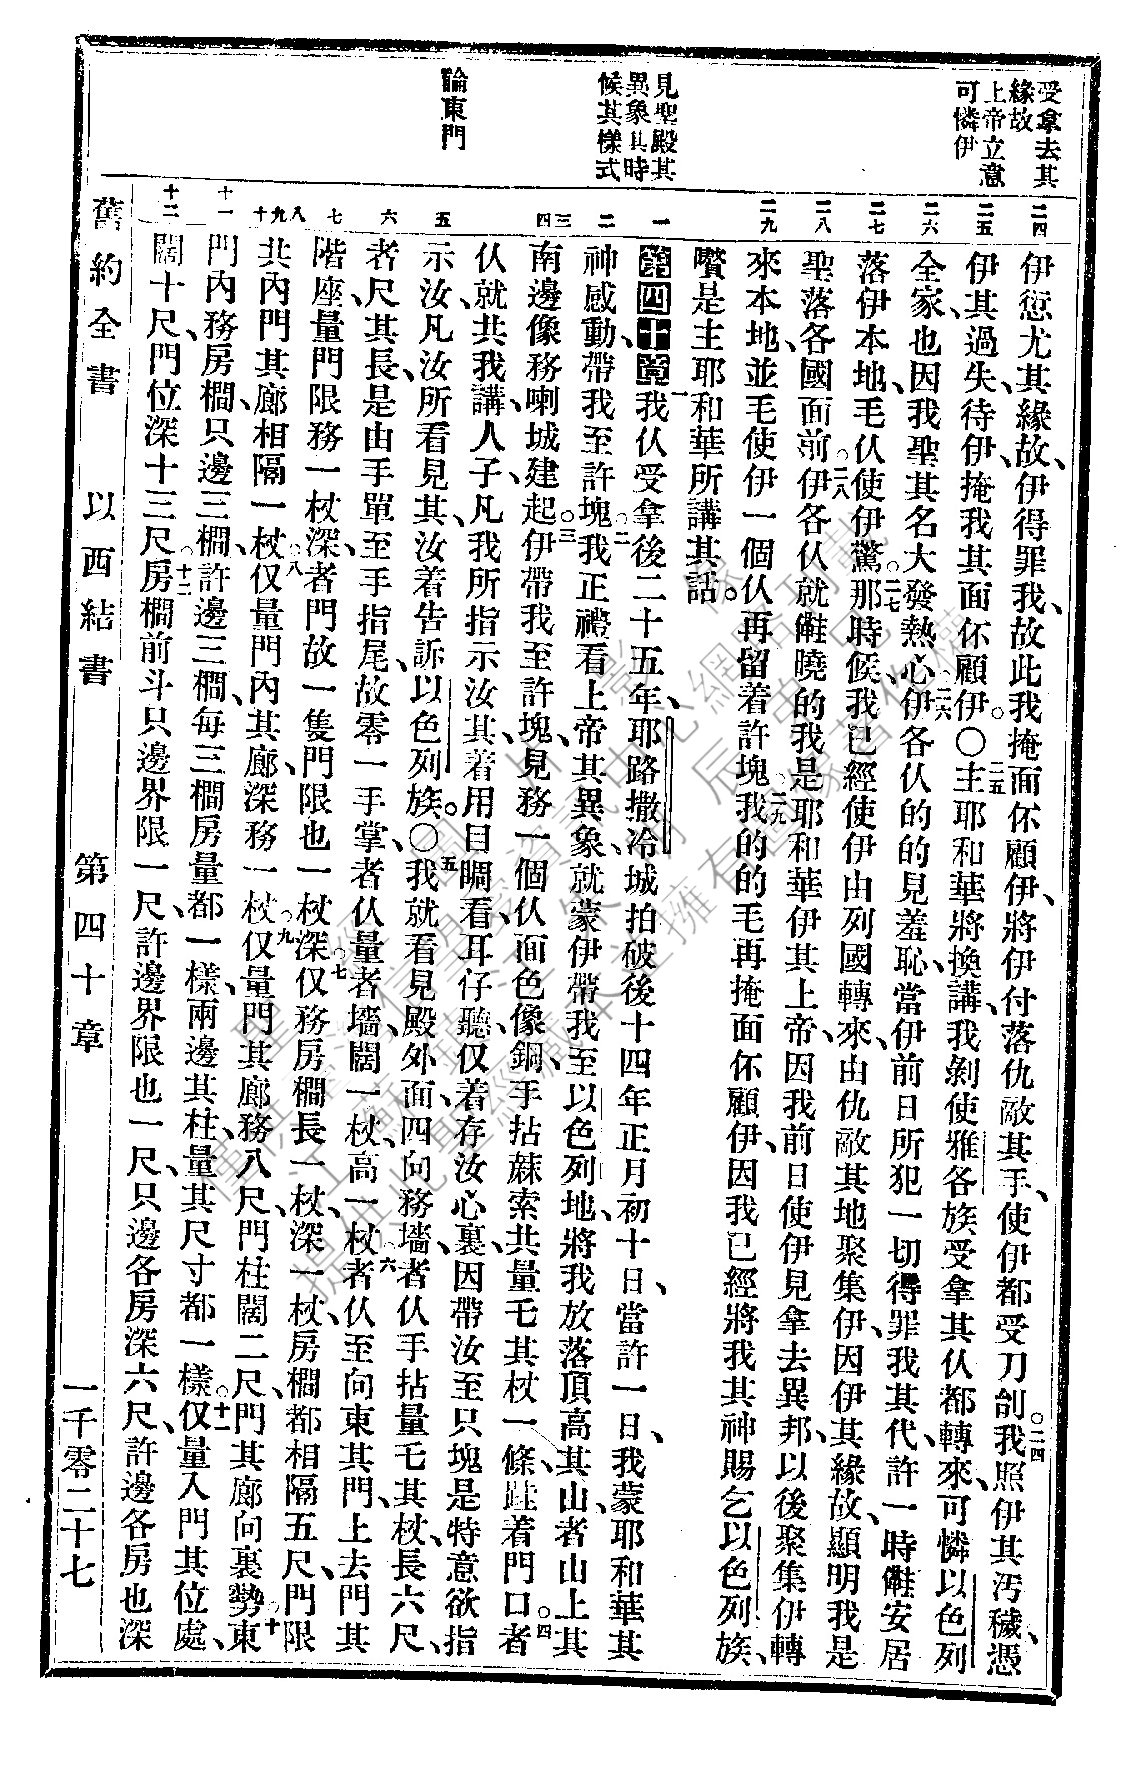 受拿去其
緣故
上帝立意
可憐伊
見聖殿其
異象其時
候其樣式
論東門
二四
二五
二六
二七
二八
二九
一
二
三四
五
六
七
八九十
十一
十二
伊愆尤其緣故、伊得罪我、故此我掩面伓顧伊、將伊付落仇敵其手、使伊都受刀刣。二四我照伊其汚穢、憑
伊其過失、待伊、掩我其面伓顧伊。〇二五主耶和華將換講、我剝使雅各族受拿其仈都轉來、可憐以色列
全家也因我聖其名大發熱心。二六伊各仈的的見羞恥、當伊前日所犯一切得罪我其代、許一時㑚安居
落伊本地、毛仈使伊驚。二七那時候、我已經使伊由列國轉來、由仇敵其地聚集伊、因伊其緣故、顯明我是
聖、落各國面前。二八伊各仈就㑚曉的我是耶和華伊其上帝、因我前日使伊見拿去異邦、以後聚集伊轉
來本地、並毛使伊一個仈再留着許塊。二九我的的毛再掩面伓顧伊、因我已經將我其神賜乞以色列族、
囋是主耶和華所講其話。
第四十章一我仈受拿後二十五年、耶路撒冷城拍破後十四年正月初十日、當許一日、我蒙耶和華其
神感動、帶我至許塊。二我正禮看上帝其異象、就蒙伊帶我至以色列地、將我放落頂高其山、者山上其
南邊像務喇城建起。三伊帶我至許塊、見務一個仈、面色像銅、手拈蔴索、共量乇其杖一條、跬着門口。四者
仈就共我講、人子、凡我所指示汝其、着用目睭看、耳仔聽、仅着存汝心裏、因帶汝至只塊、是特意欲指
示汝、凡汝所看見其、汝着告訴以色列族。〇五我就看見殿外面四向務墻、者仈手拈量乇其杖、長六尺、
者尺其長、是由手單至手指尾、故零一手掌、者仈量者墻、闊一杖、高一杖。六者仈至向東其門、上去門其
階座、量門限務一杖深、者門故一隻門限也一杖深。七仅務房櫊、長一杖、深一杖、房櫊都相隔五尺、門限
共內門其廊相隔一杖。八仅量門內其廊、深務一杖。九仅量門其廊務八尺、門柱闊二尺、門其廊向裏勢。十東
門內務房櫊、只邊三櫊、許邊三櫊、每三櫊房量都一樣、兩邊其柱、量其尺寸都一樣。十一仅量入門其位處、
闊十尺、門位深十三尺。十二房櫊前斗只邊界限一尺、許邊界限也一尺、只邊各房深六尺、許邊各房也深
舊約全書　以西結書　第四十章　一千零二十七